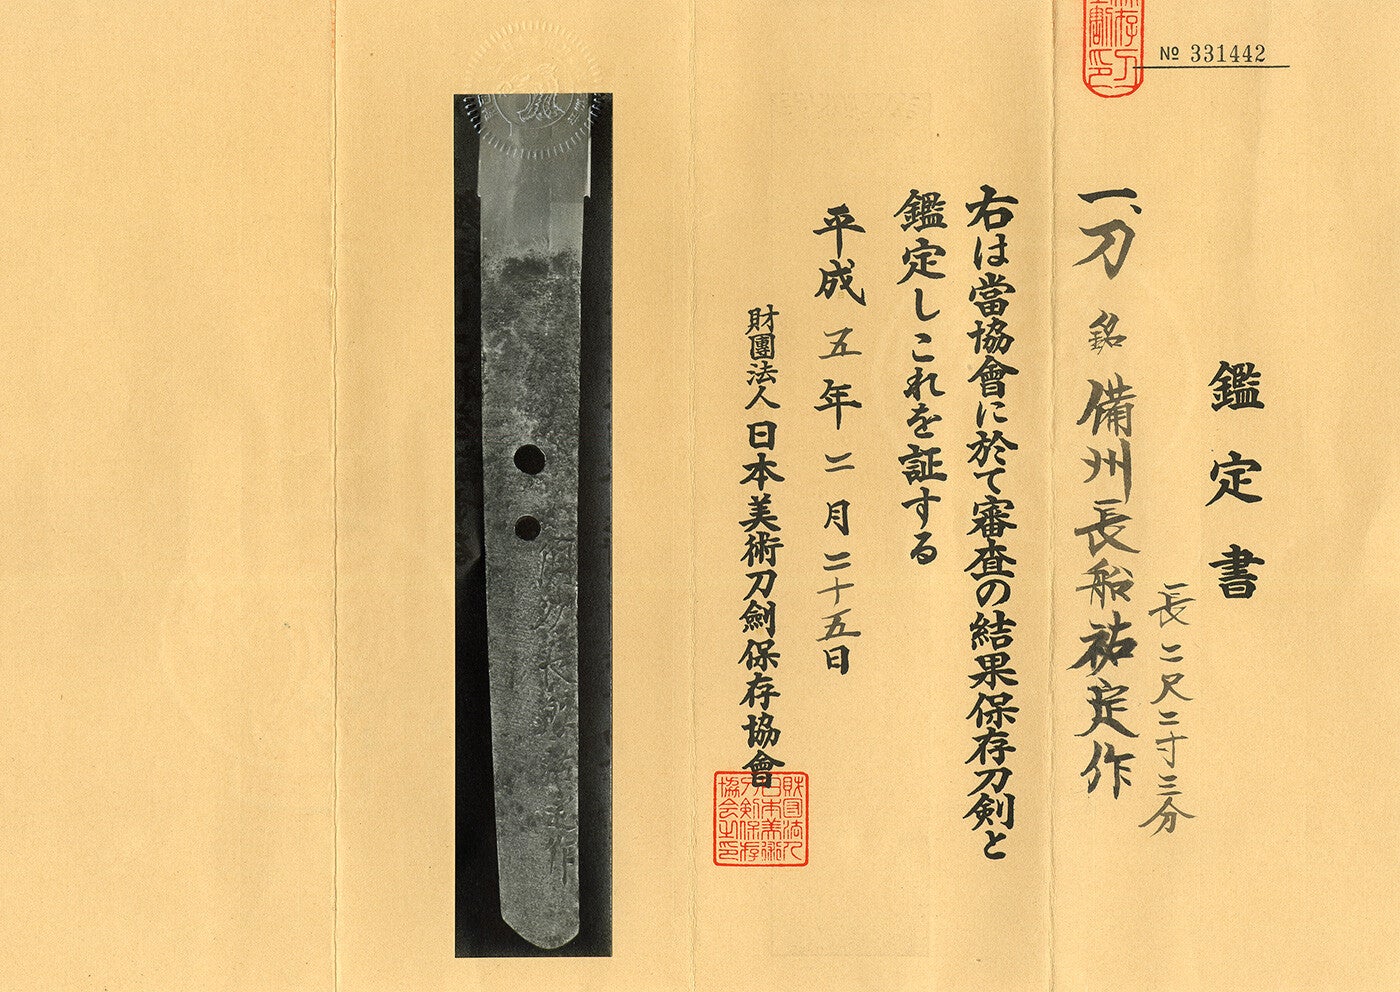 № 331442
鑑定書
一、刀 銘 備州長船祐定作
長二尺二寸三分
右は當協會に於て審査の結果保存刀剣と
鑑定しこれを証する
平成五年二月二十五日
財團法人日本美術刀劍保存協會
財団法人
日本美術
刀剣保存
協会之印